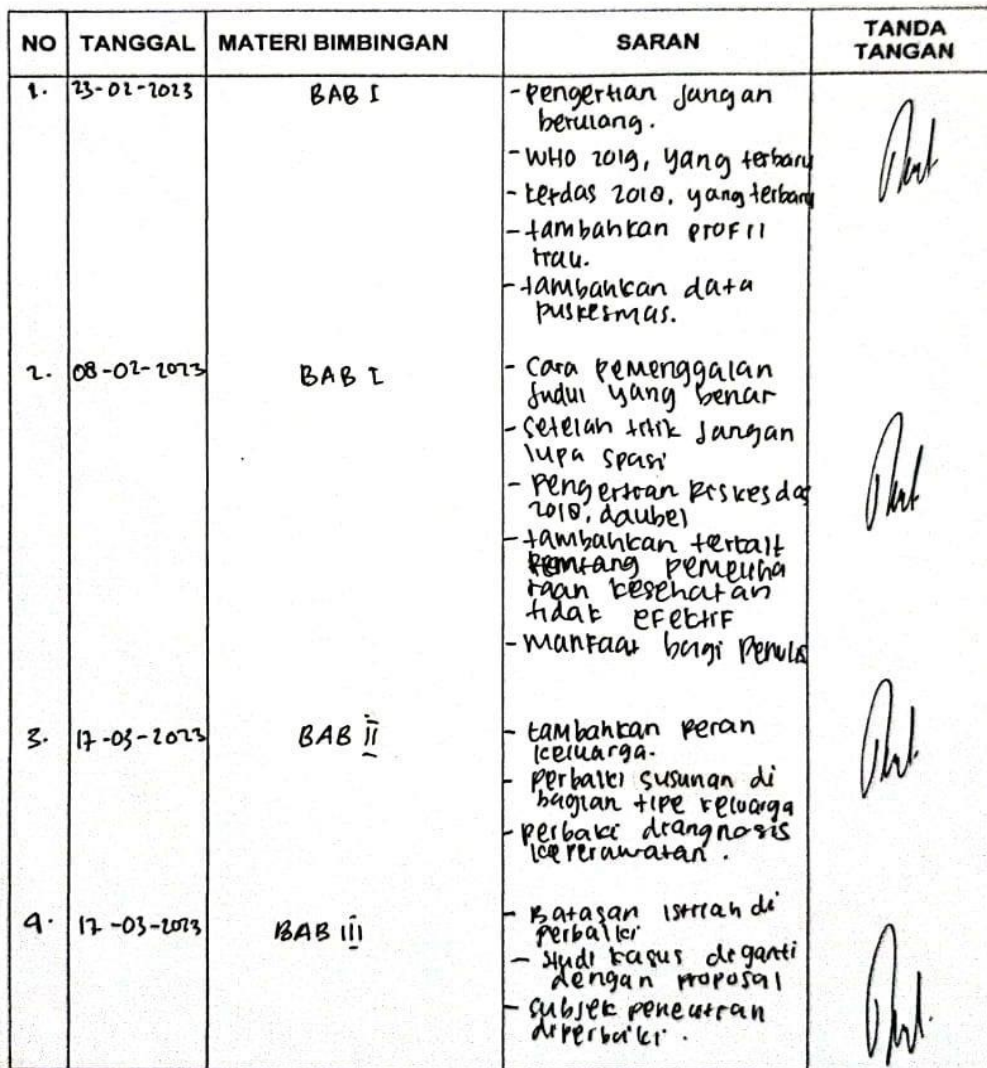 NO TANGGAL MATERI BIMBINGAN SARAN TANDA TANGAN
1. 23-02-2023 BAB I - pengertian jangan
berulang.
- WHO 2019, yang terbaru
- kerdas 2018, yang terbaru
- tambahkan profil
riau.
- tambahkan data
puskesmas.
2. 08-02-2023 BAB I - Cara pemenggalan
judul yang benar
- setelah titik jangan
lupa spasi
- pengertian Riskesdas
2018, daubel
- tambahkan terkait
tentang pemeliha
raan kesehatan
tidak efektif
- manfaat bagi Penulis
3. 17-03-2023 BAB II - tambahkan peran
keluarga.
- perbaiki susunan di
bagian tipe keluarga
- perbaki diangnosis
keperawatan.
4. 17-03-2023 BAB III - Batasan istilah di
perbaiki
- studi kasus diganti
dengan proposal
- subjek penelitian
diperbaiki.